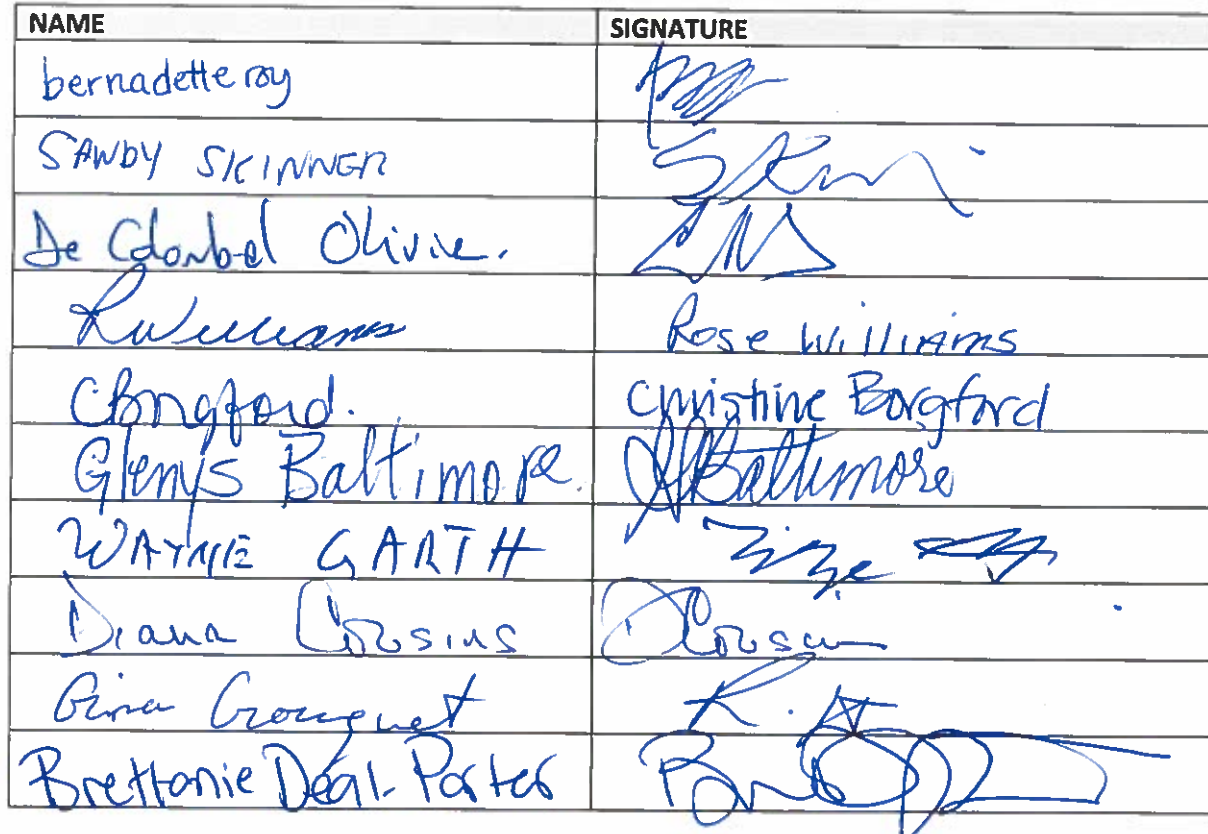 NAME SIGNATURE
bernadette roy
SANDY SKINNER
De Colombel Olivie.
RWilliams Rose Williams
CBorgford. Christine Borgford
Glenys Baltimore. GBaltimore
WAYNE GARTH
Diana Cousins DCousin
Gina
Brettanie Deal-Porter